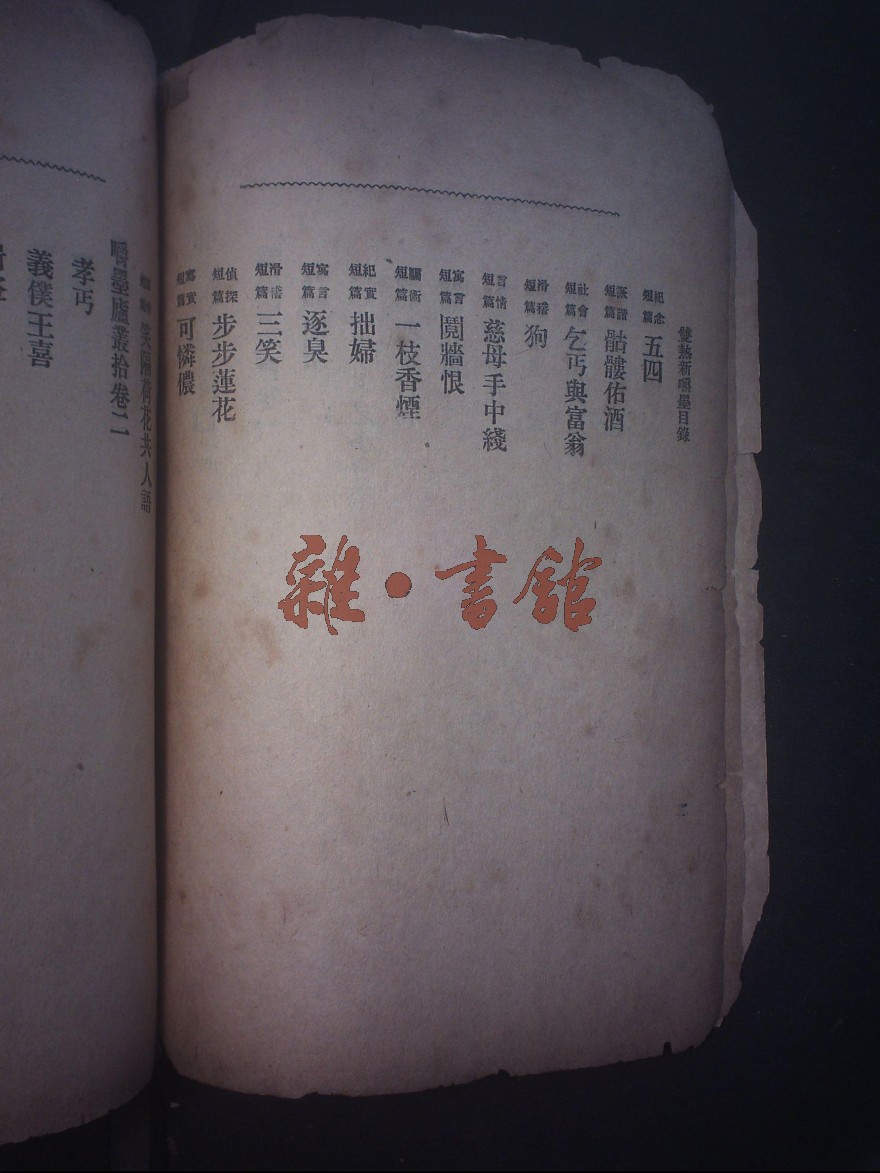 雙熱新嚼墨目錄
紀念短篇 五四
詼諧短篇 骷髏佑酒
社會短篇 乞丐與富翁
滑稽短篇 狗
言情短篇 慈母手中綫
寓言短篇 鬩牆恨
短篇 一枝香煙
紀實短篇 拙婦
寓言短篇 逐臭
滑稽短篇 三笑
偵探短篇 步步蓮花
寫實短篇 可憐儂
二
笑隔荷花共人語
嚼墨廬叢拾卷二
孝丐
義僕王喜
雜·書館